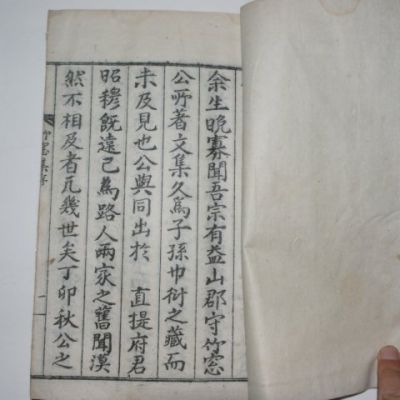 余生晚寡聞吾宗有益山郡守竹窓
公所著文集久爲子孫巾衍之藏而
未及見也公與同出於 直提府君
昭穆旣遠已爲路人兩家之舊聞漠
然不相及者凡幾世矣丁卯秋公之
竹窓集序
一